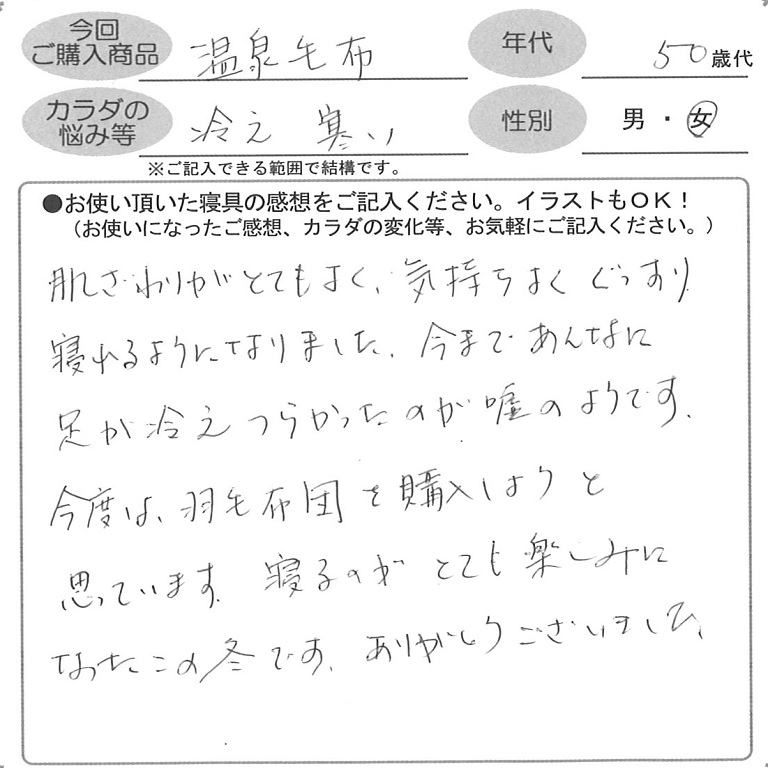 今回
ご購入商品 温泉毛布 年代 50歳代
カラダの
悩み等 冷え 寒い 性別 男・女
※ご記入できる範囲で結構です。
●お使い頂いた寝具の感想をご記入ください。イラストもOK！
（お使いになったご感想、カラダの変化等、お気軽にご記入ください。）
肌ざわりがとてもよく、気持ちよくぐっすり
寝れるようになりました。今まであんなに
足が冷えつらかったのが嘘のようです。
今度は、羽毛布団を購入しようと
思っています。寝るのがとても楽しみに
なったこの冬です。ありがとうございました。